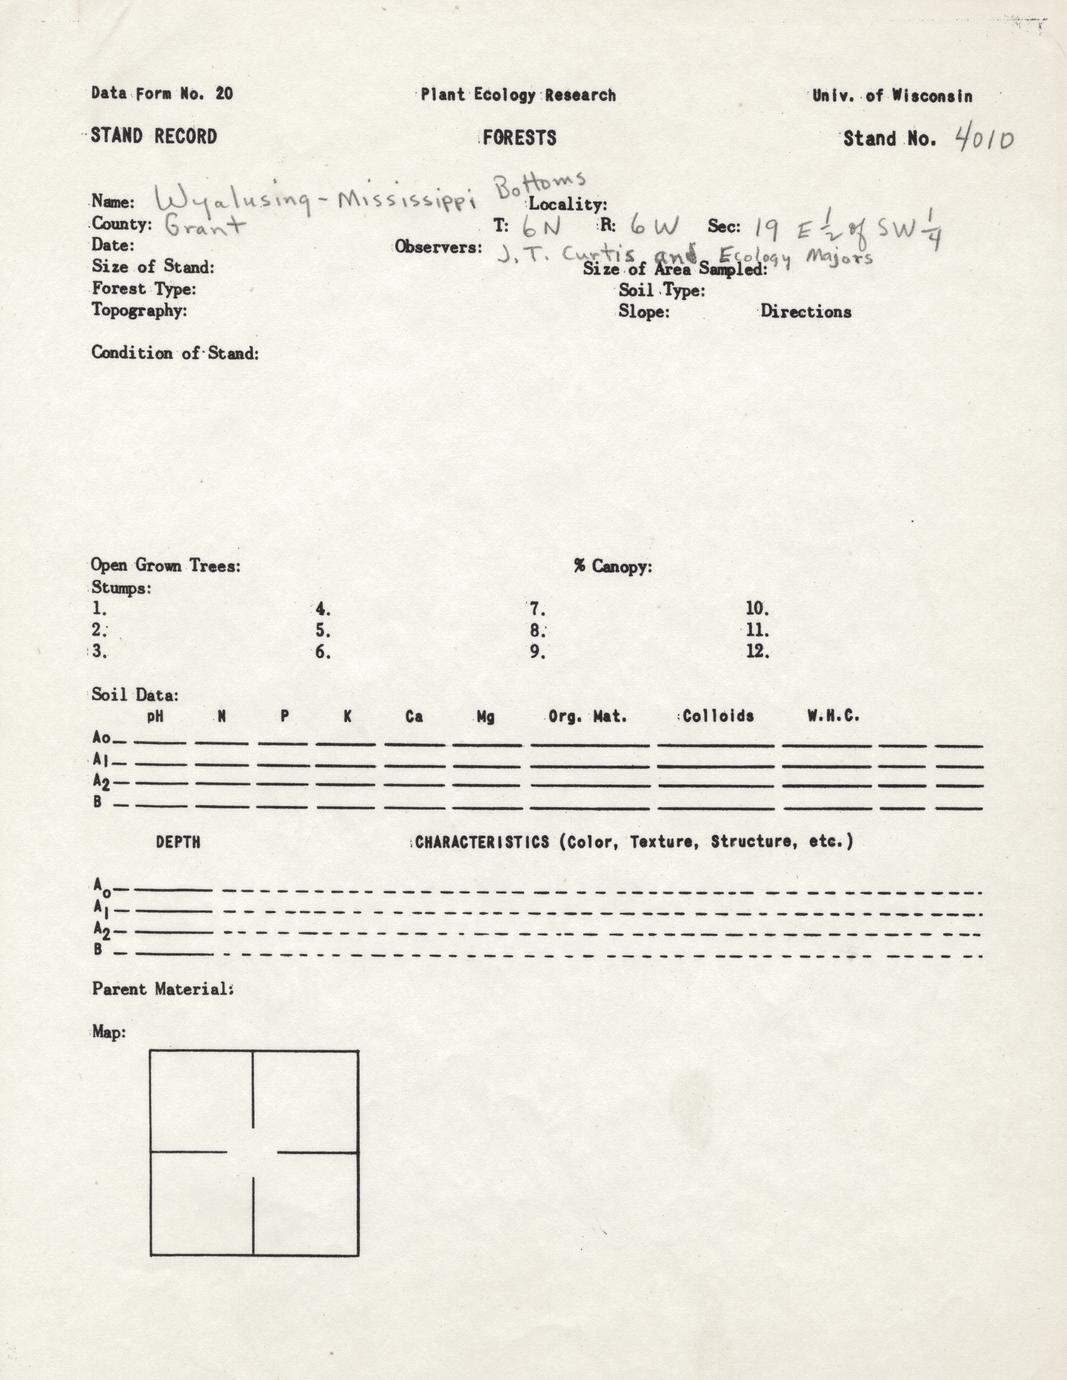 Data Form No. 20 Plant Ecology Research Univ. of Wisconsin
STAND RECORD FORESTS Stand No. 4010
Name: Wyalusing - Mississippi Bottoms Locality:
County: Grant T: 6N R: 6W Sec: 19 E 1/2 of SW 1/4
Date: Observers: J. T. Curtis and Ecology Majors
Size of Stand: Size of Area Sampled:
Forest Type: Soil Type:
Topography: Slope: Directions
Condition of Stand:
Open Grown Trees: % Canopy:
Stumps:
1. 4. 7. 10.
2. 5. 8. 11.
3. 6. 9. 12.
Soil Data:
pH N P K Ca Mg Org. Mat. Colloids W.H.C.
Ao
A1
A2
B
DEPTH CHARACTERISTICS (Color, Texture, Structure, etc.)
Ao
A1
A2
B
Parent Material:
Map: